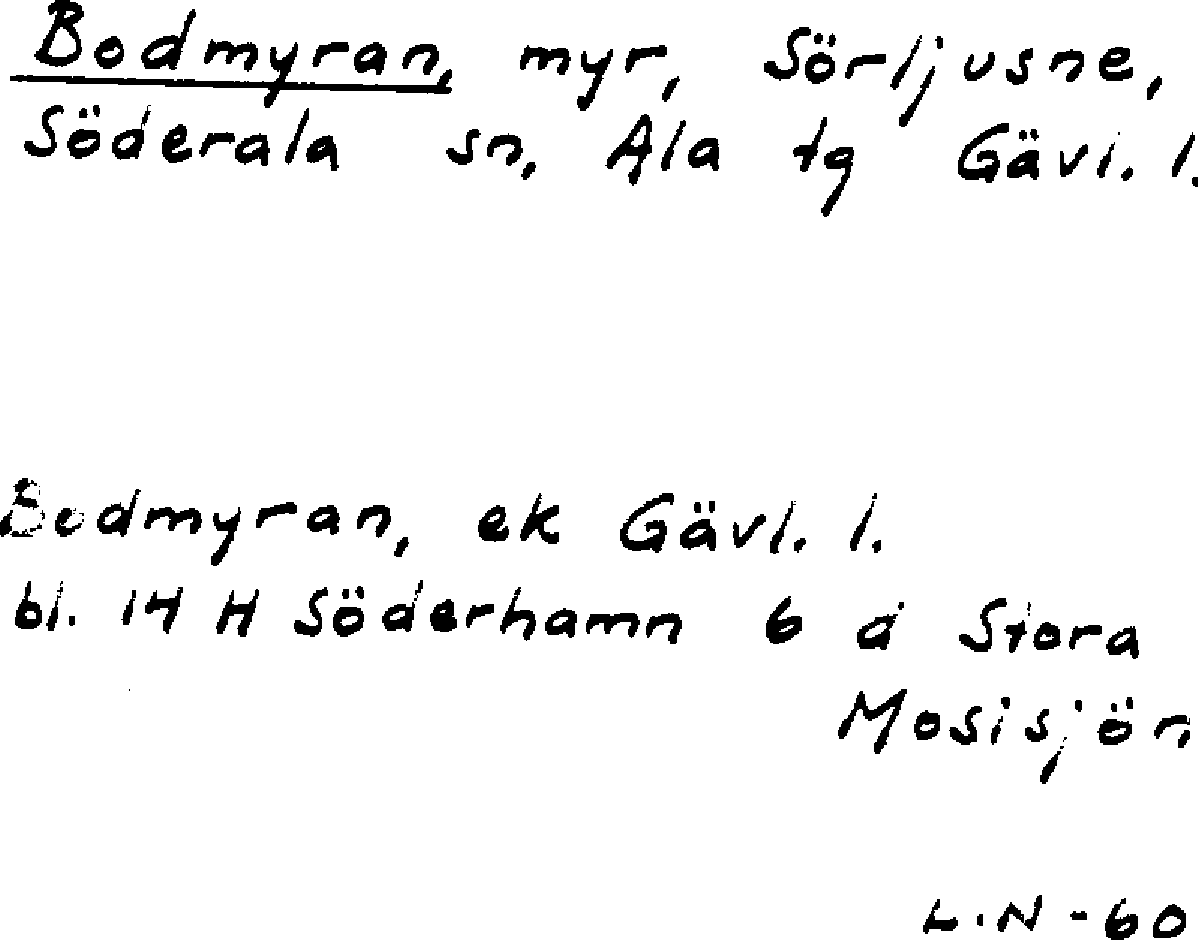 Bodmyran, myr, Sörljusne,
Söderala sn, Ala tg Gävl. l.
Bodmyran, ek Gävl. l.
bl. 14 H Söderhamn 6 d Stora
Mosisjön
L.N-60